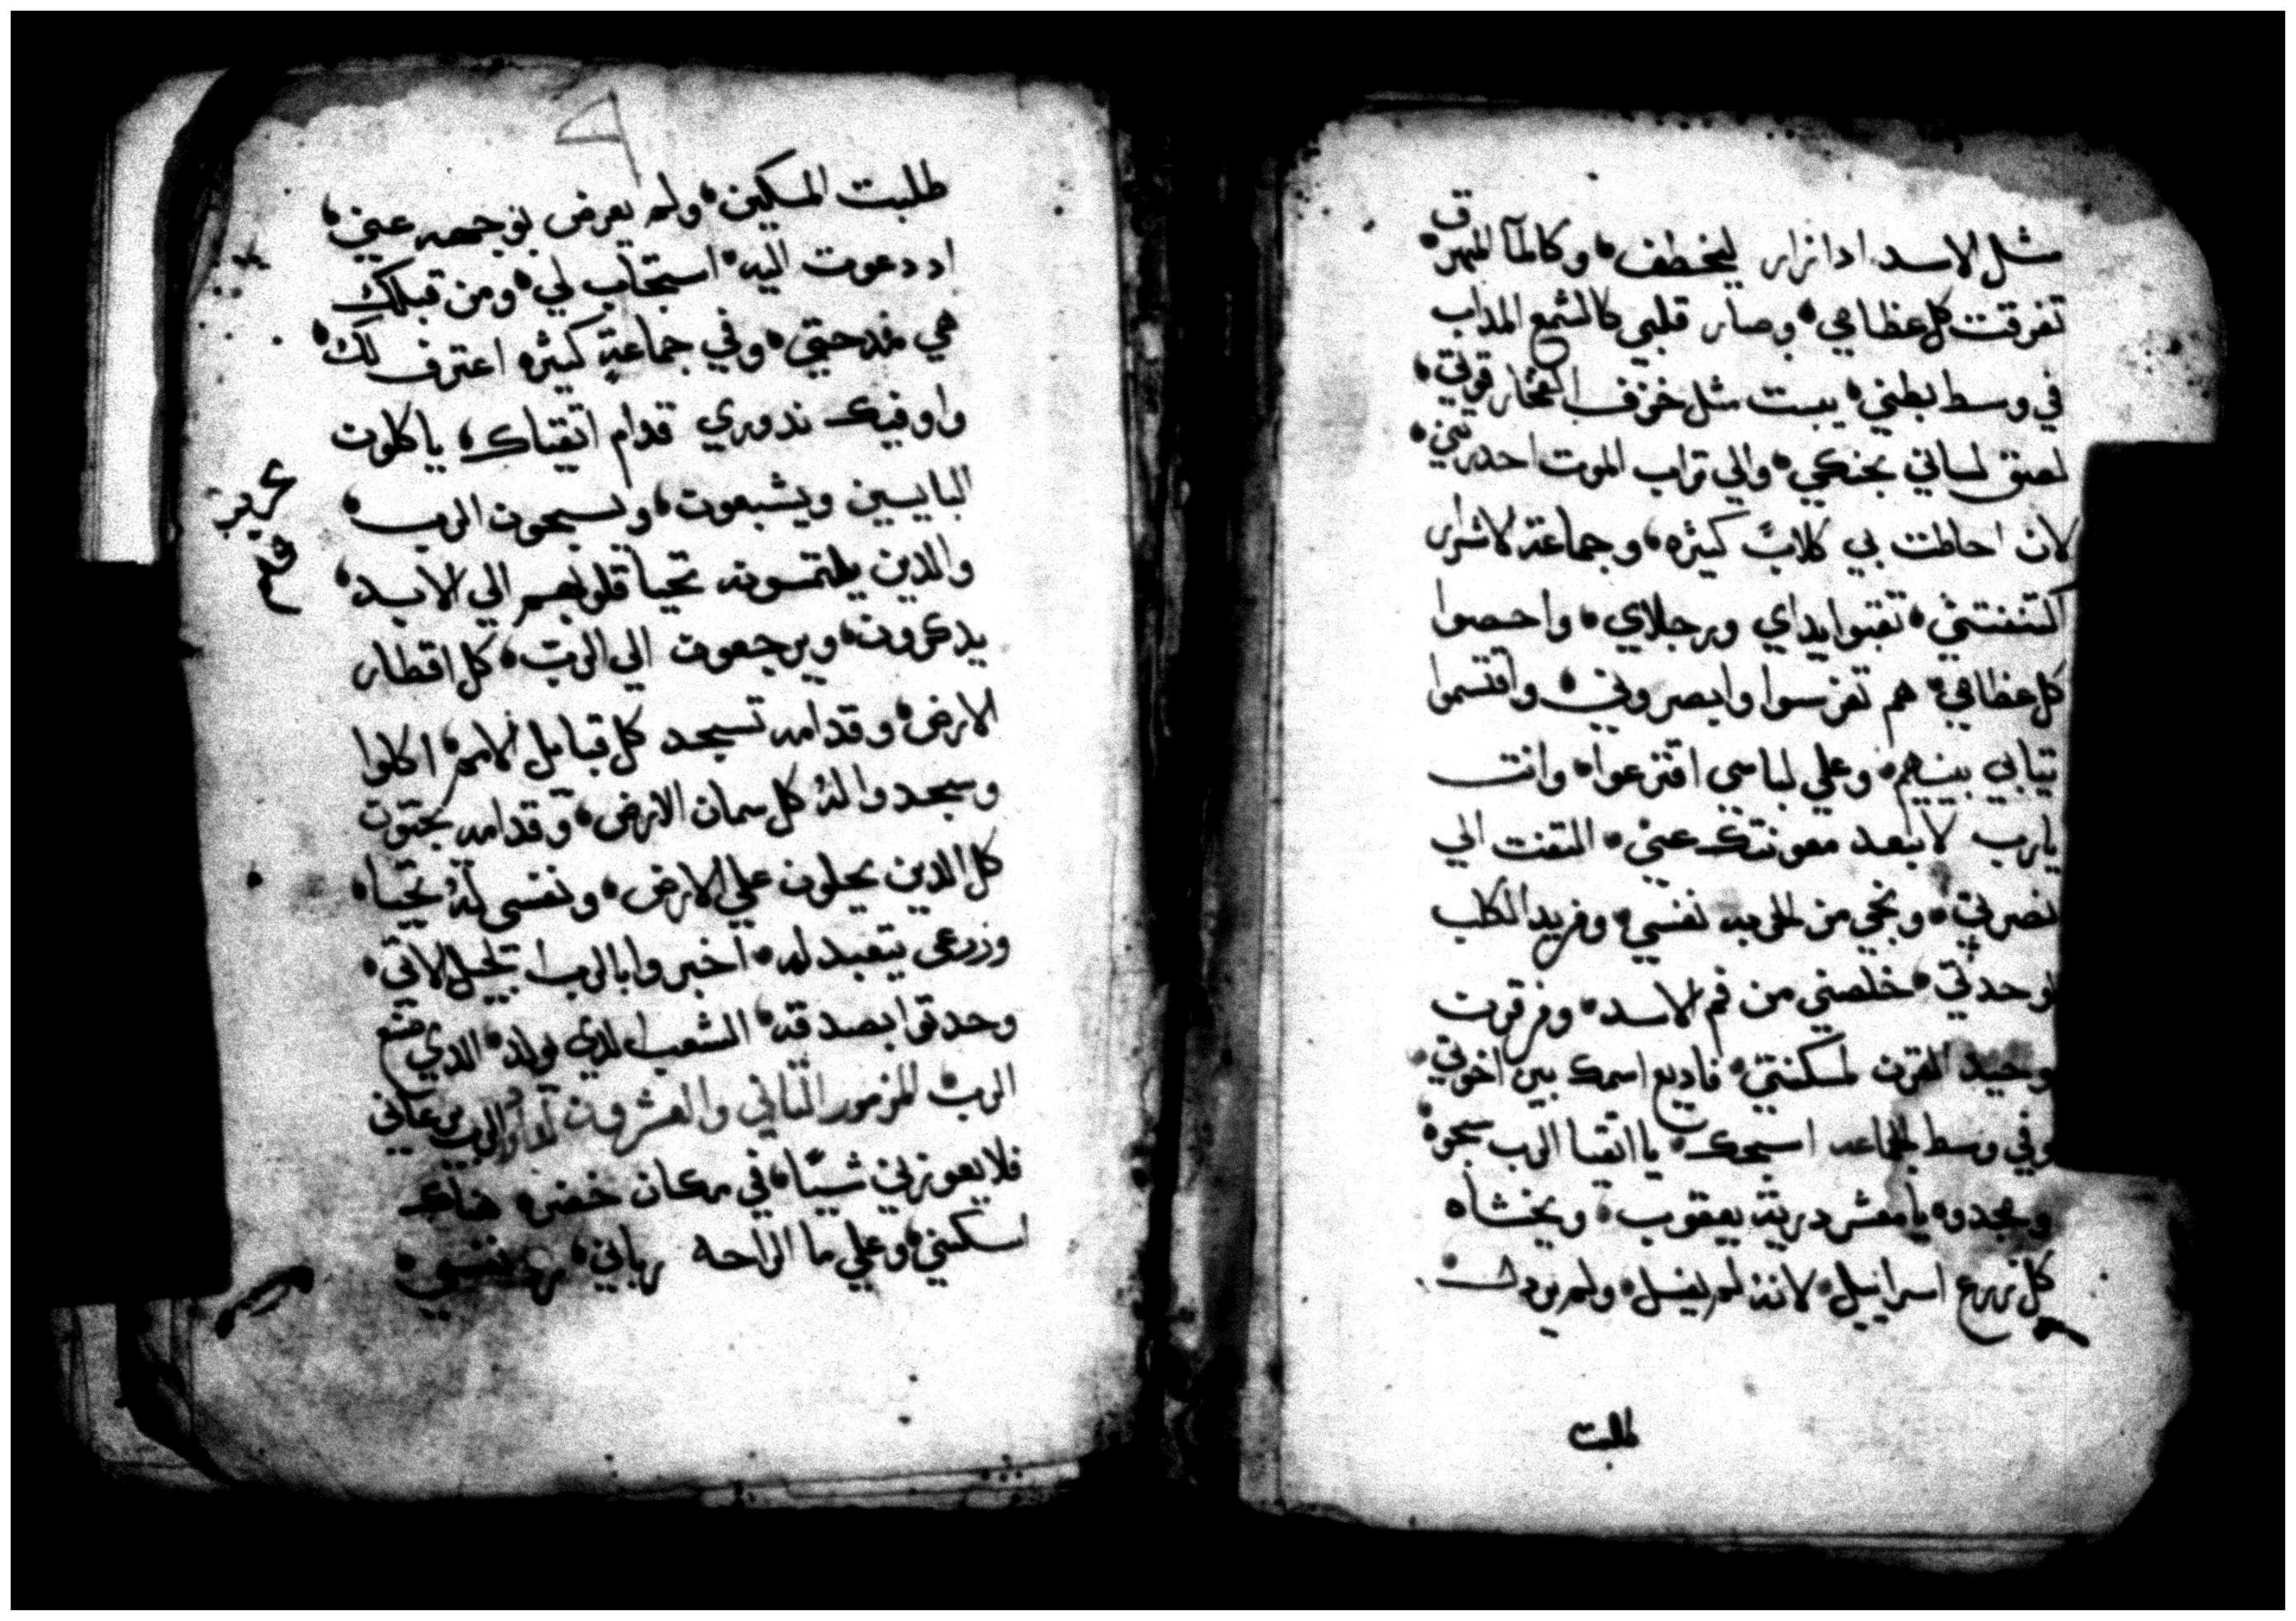 مثل الاسد ادا زار ليخطف، وكالمآ المهرق
تفرقت كل عظامي، وصار قلبي كالشمع المداب
في وسط بطني، يبست مثل خزف الفخار قوتي،
لصق لساني بحنكي، والي تراب الموت احدرتني،
لان احاطت بي كلابٌ كثيره، وجماعة الاشرار
اكتنفتني، تقبوا يداي ورجلاي، واحصوا
كل عظامي، هم تفرسوا وابصروني، واقتسموا
تيابي بينهم، وعلي لباسي اقترعوا، وانت
يارب لاتبعد معونتك عني، التفت الي
نصرتي، ونجي من الحربه نفسي، ومن يد الكلب
لوحدتي، خلصني من فم الاسد، ومن قرن
وحيد القرن لمسكنتي، فاديع اسمك بين اخوتي،
وفي وسط الجماعه اسبحك، يااتقيا الرب سبحوه
ومجدوه يامعشر درية يعقوب، ويخشاه
كل زرع اسرائيل، لانه لم يغسل، ولم يردل
طلبت
طلبت المسكين، ولم يعرض بوجهه عني،
اد دعوت اليه، استجاب لي، ومن قبلك
هي مدحتي، وفي جماعة كثيره اعترف لك،
واوفيك ندوري قدام اتقياك، ياكلون
البايسين ويشبعون، ويسبحون الرب،
والدين يلتمسونه تحيا قلوبهم الي الابد،
يدكرون، ويرجعون الي الربّ، كل اقطار
الارض، وقدامه تسجد كل قبايل الامم، اكلوا
وسجدوا له كل سمان الارض، وقدامه يجتون
كل الدين يحلون علي الارض، ونفسي له تحيا،
وزرعي يتعبد له، اخبروا بالرب الجيل الاتي،
وحدتوا بصدقه، الشعب الدي يولد، الدي صنع
الرب، المزمور التاني والعشرون لداود الرب يرعاني
فلايعوزني شيًا، في مكان خضره هناك
اسكنني، وعلي ما الراحه رباني، رد نفسي،